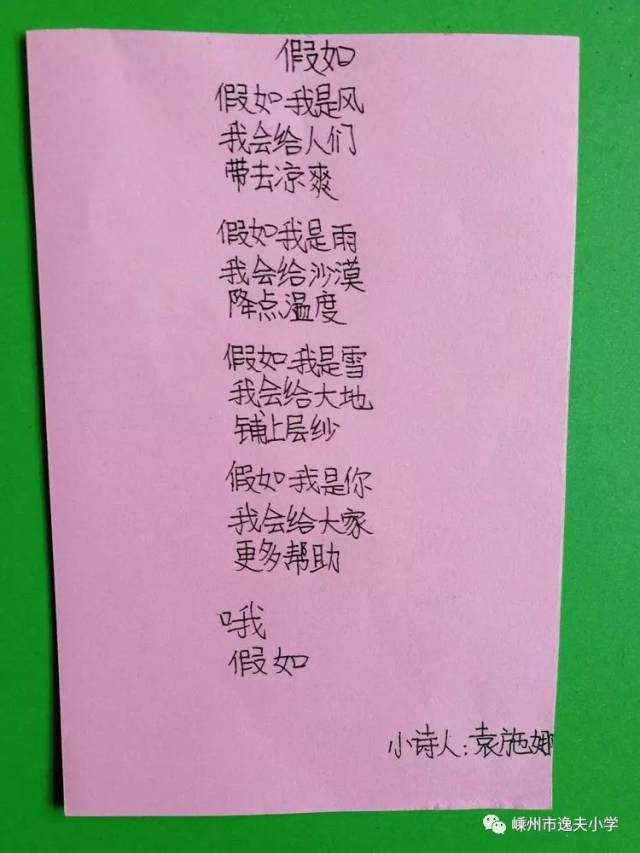 假如
假如我是风
我会给人们
带去凉爽
假如我是雨
我会给沙漠
降点温度
假如我是雪
我会给大地
铺上层纱
假如我是你
我会给大家
更多帮助
哦
假如
小诗人:袁施娜
嵊州市逸夫小学